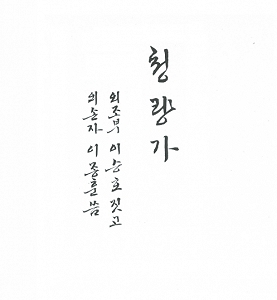 청량가
외조부 이승호 짓고
외손자 이종훈 씀